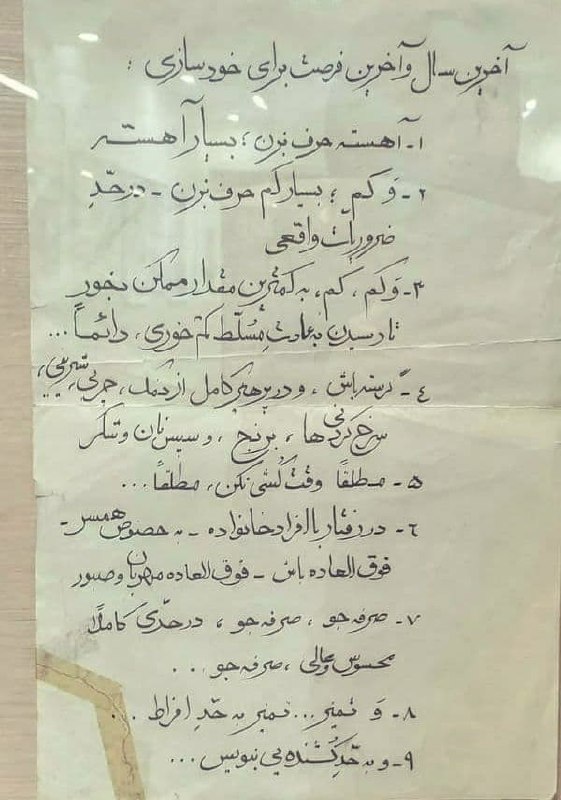 آخرین سال و آخرین فرصت برای خودسازی :
۱- آهسته حرف بزن ؛ بسیار آهسته
۲- وَ کم ؛ بسیار کم حرف بزن - در حدِّ
ضروریّات واقعی
۳- وَ کم، کم، به کمترین مقدار ممکن بخور
تا رسیدن به عادتِ مُسلّط کم خوری، دائماً ...
٤- گرسنه باش ، و در پرهیز کامل از نمک، چربی، شیرینی،
سرخ کردنی ها ، برنج ، و سپس نان و شکر
۵- مطلقاً وقت کُشی نکن، مطلقاً ...
٦- در رفتار با افراد خانواده - به خصوص همسر -
فوق العاده باش - فوق العاده مهربان و صبور
۷- صرفه جو ، صرفه جو ، در حدّی کاملاً
محسوس و عالی ، صرفه جو ...
۸- وَ تمیز ... تمیز به حدّ افراط ...
۹- و به حّدِ کُشنده یی بنویس ...